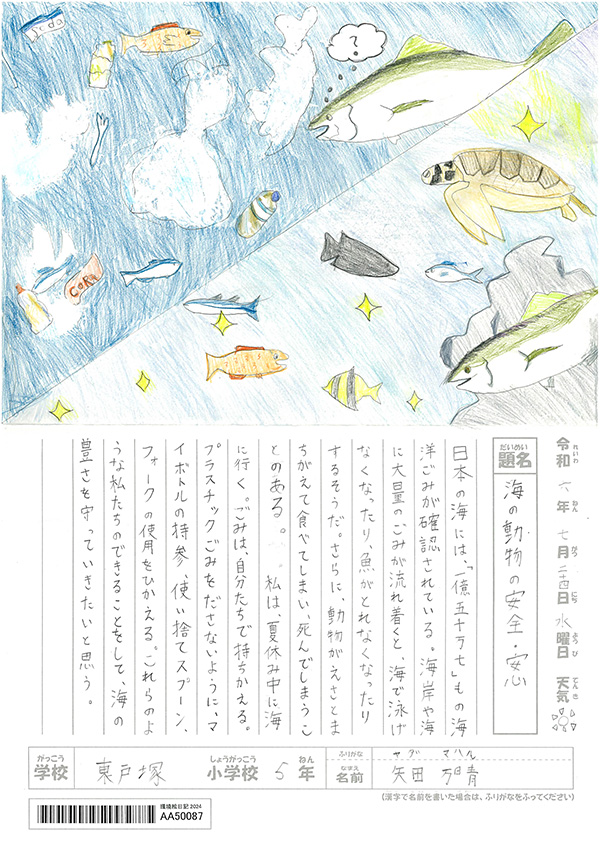 Soda
?
令和六年七月二十四日水曜日 天気
れいわ ねん がつ にち ようび てんき
だいめい
題名 海の動物の安全・安心
日本の海には、「一億五十万七」もの海
洋ごみが確認されている。海岸や海
に大量のごみが流れ着くと、海で泳げ
なくなったり、魚がとれなくなったり
するそうだ。さらに、動物がえさとま
ちがえて食べてしまい、死んでしまうこ
とのある。 私は、夏休み中に海
に行く。ごみは、自分たちで持ちかえる。
プラスチックごみをださないように、マ
イボトルの持参、使い捨てスプーン、
フォークの使用をひかえる。これらのよ
うな私たちのできることをして、海の
豊さを守っていきたいと思う。
がっこう しょうがっこう ねん
学校 東戸塚 小学校 5年
ふりがな ヤダ マハル
なまえ
名前 矢田
(漢字で名前を書いた場合は、ふりがなをふってください)
環境絵日記 2024
AA50087